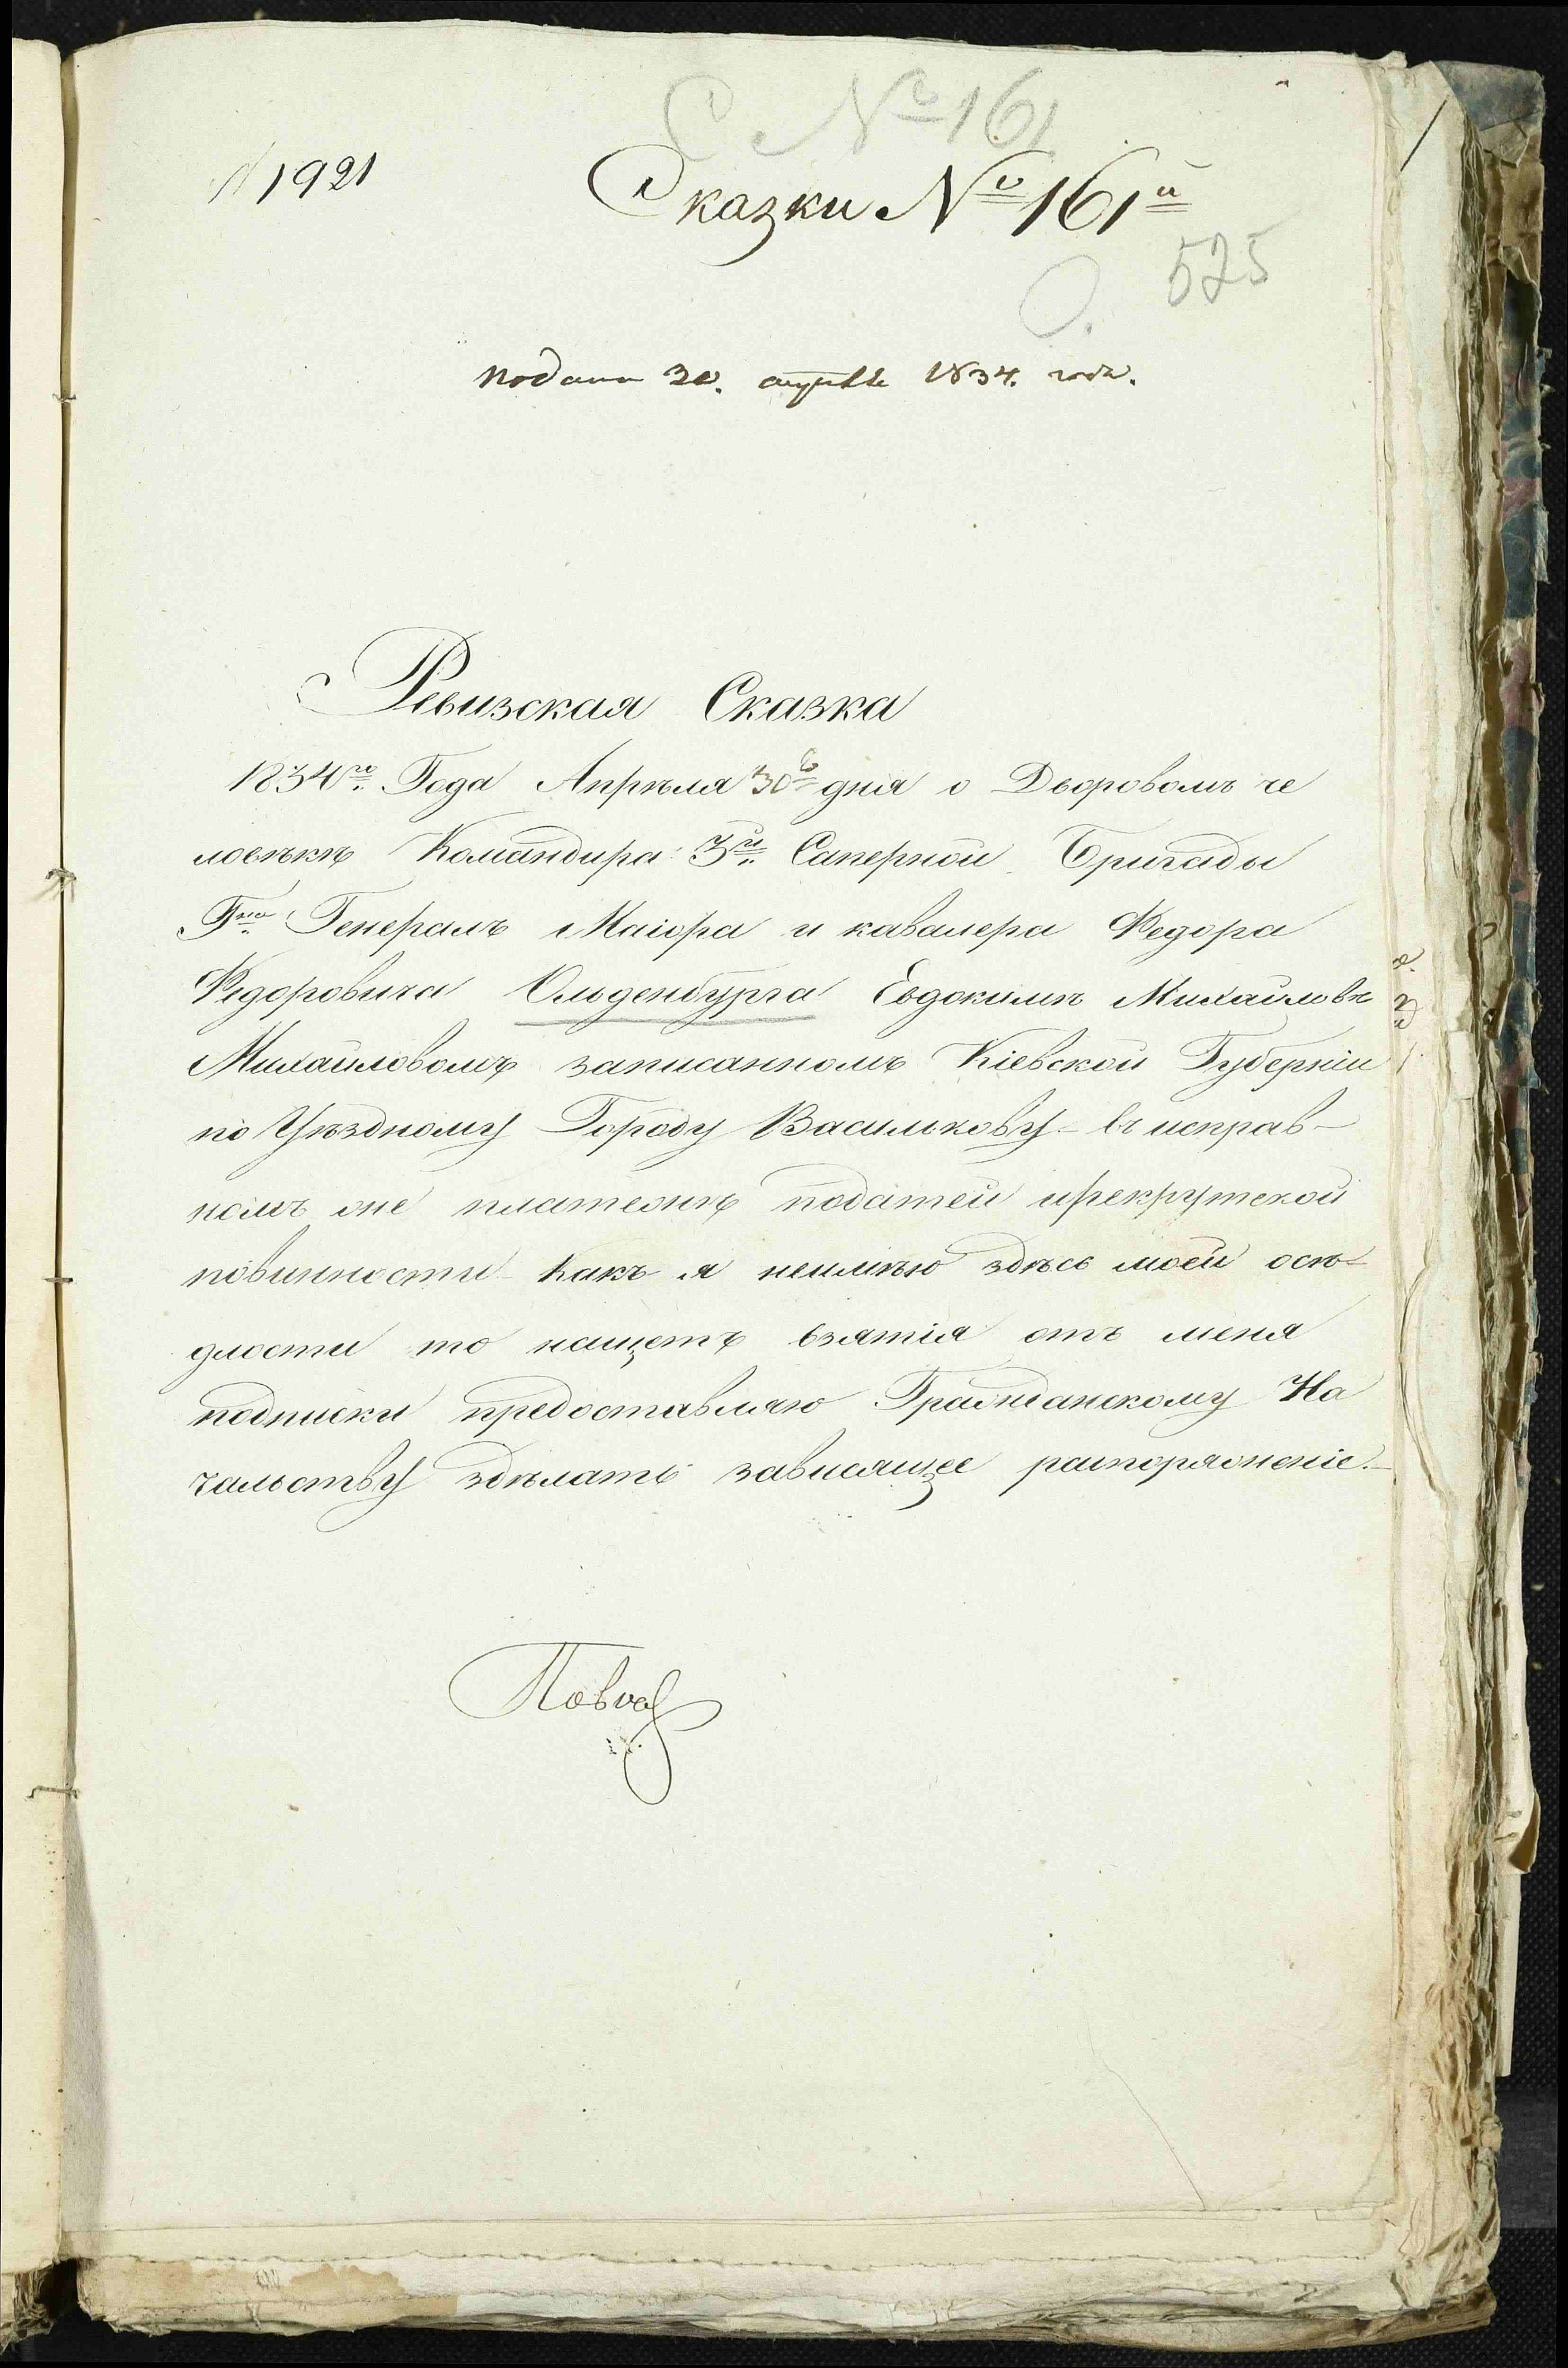 С №161
№ 1921
Сказки № 161й
О. 525
подана 30. апреля 1834. года.
Ревизская Сказка
1834го. Года Апрѣля 30го дня о Дворовомъ че
ловѣкѣ Командира 3й. Саперной Бригады
Гна. Генералъ Маіора и кавалера Федора
Федоровича Ольденбурга Евдокимѣ Михайловѣ
Михайловомъ записанномъ Кіевской Губерніи
по Уѣздному Городу Василькову - въ исправ-
номъ же платежѣ податей ирекрутской
повинности - какъ я неимѣю здѣсь моей осѣ-
длости то нащетъ взятія отъ меня
подписки предоставляю Гражданскому На
чальству здѣлать зависящее распоряженіе.-